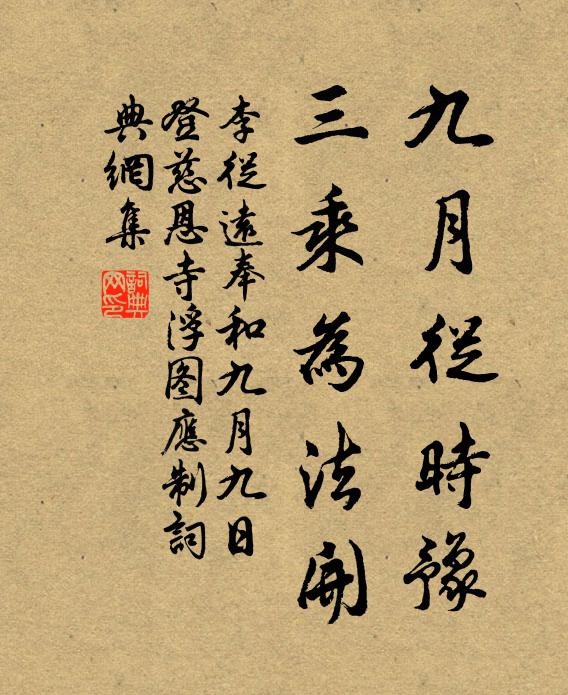 九月從時豫
三乘為法開
李從遠奉和九月九日
登慈恩寺浮图應制詞
典網集
詞典网印